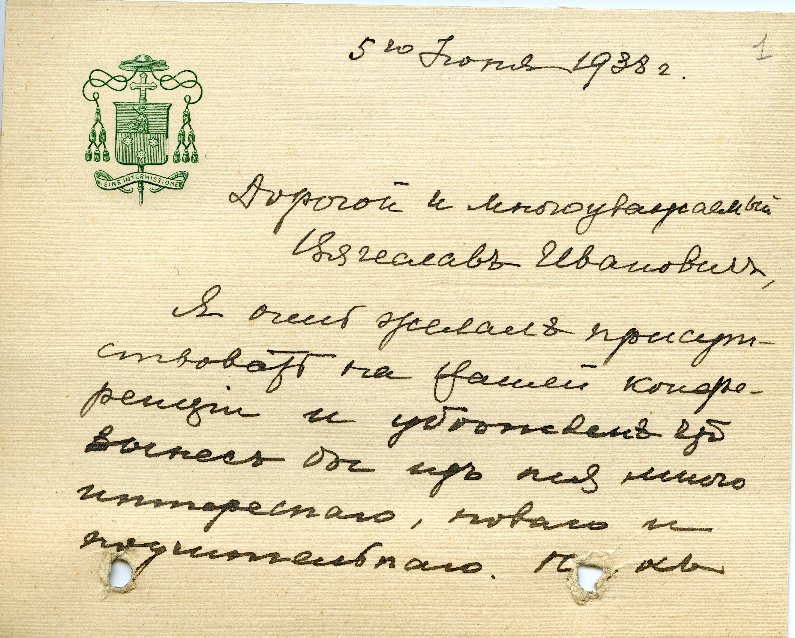 1
5го Iюня 1938 г.
SINE INTERMISSIONE
Дорогой и многоуважаемый
Вячеславъ Ивановичъ,
Я очень желалъ присут-
ствовать на Вашей конфе-
ренціи и убѣжденъ что
вынесъ бы изъ нея много
интереснаго, новаго и
поучительнаго. Н